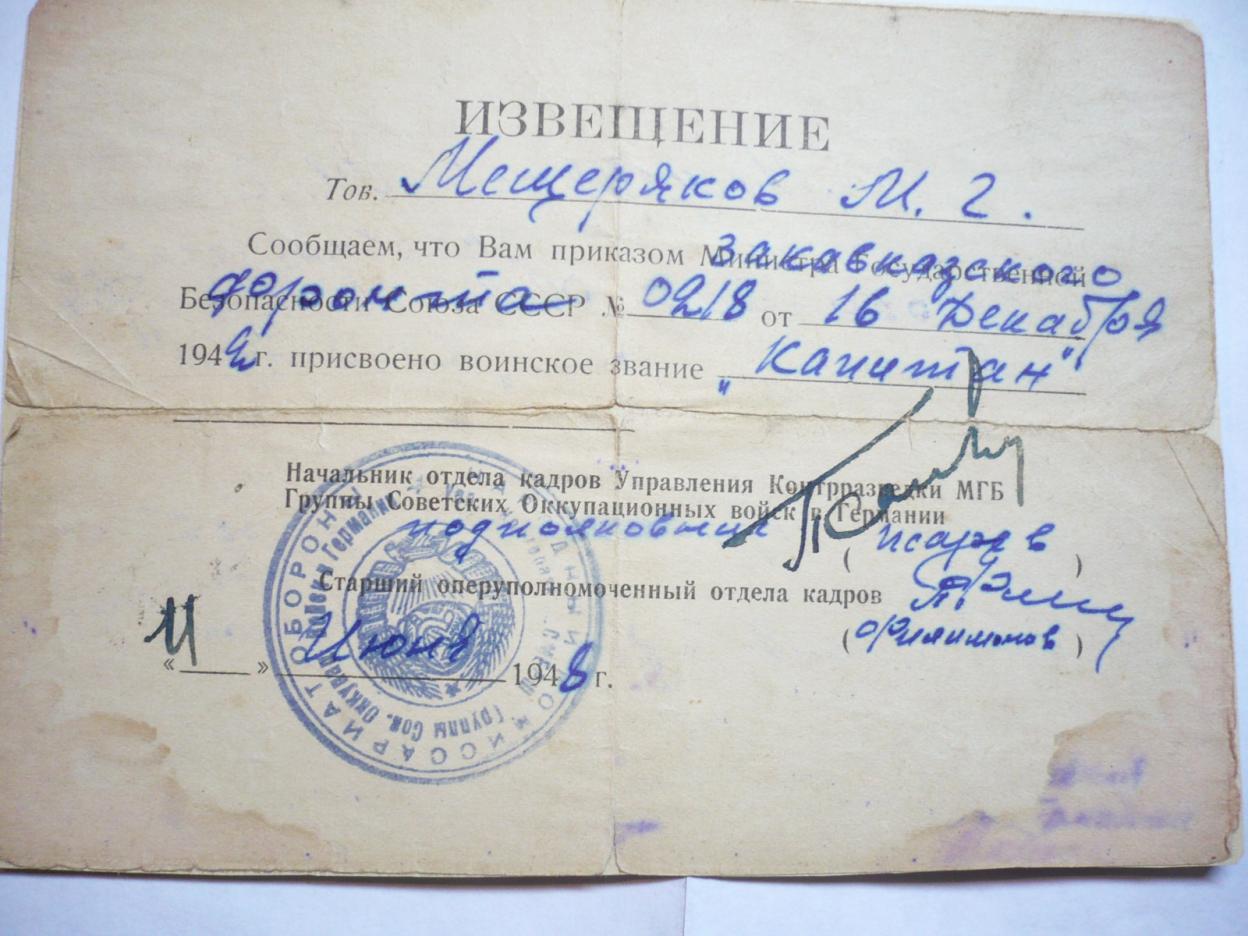 ИЗВЕЩЕНИЕ
Тов. Мещеряков М. Г.
Сообщаем, что Вам приказом Министра Государственной Закавказского
Безопасности Союза СССР фронта № 0218 от 16 Декабря
1942 г. присвоено воинское звание „Капитан"
Начальник отдела кадров Управления Контрразведки МГБ
Группы Советских Оккупационных войск в Германии
подполковник (Писарев)
Старший оперуполномоченный отдела кадров
(Филимонов)
«11» Июня 1948 г.
НАРОДНЫЙ КОМИССАРИАТ ОБОРОНЫ
Группы Сов. Оккупац. войск в Германии